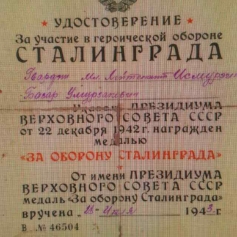 УДОСТОВЕРЕНИЕ
За участие в героической обороне
СТАЛИНГРАДА
Гвардии Мл. Лейтенант
Указом ПРЕЗИДИУМА
ВЕРХОВНОГО СОВЕТА СССР
от 22 декабря 1942 г. награжден
медалью
«ЗА ОБОРОНУ СТАЛИНГРАДА»
От имени ПРЕЗИДИУМА
ВЕРХОВНОГО СОВЕТА СССР
медаль „За оборону Сталинграда"
вручена 194 г.
В № 46504